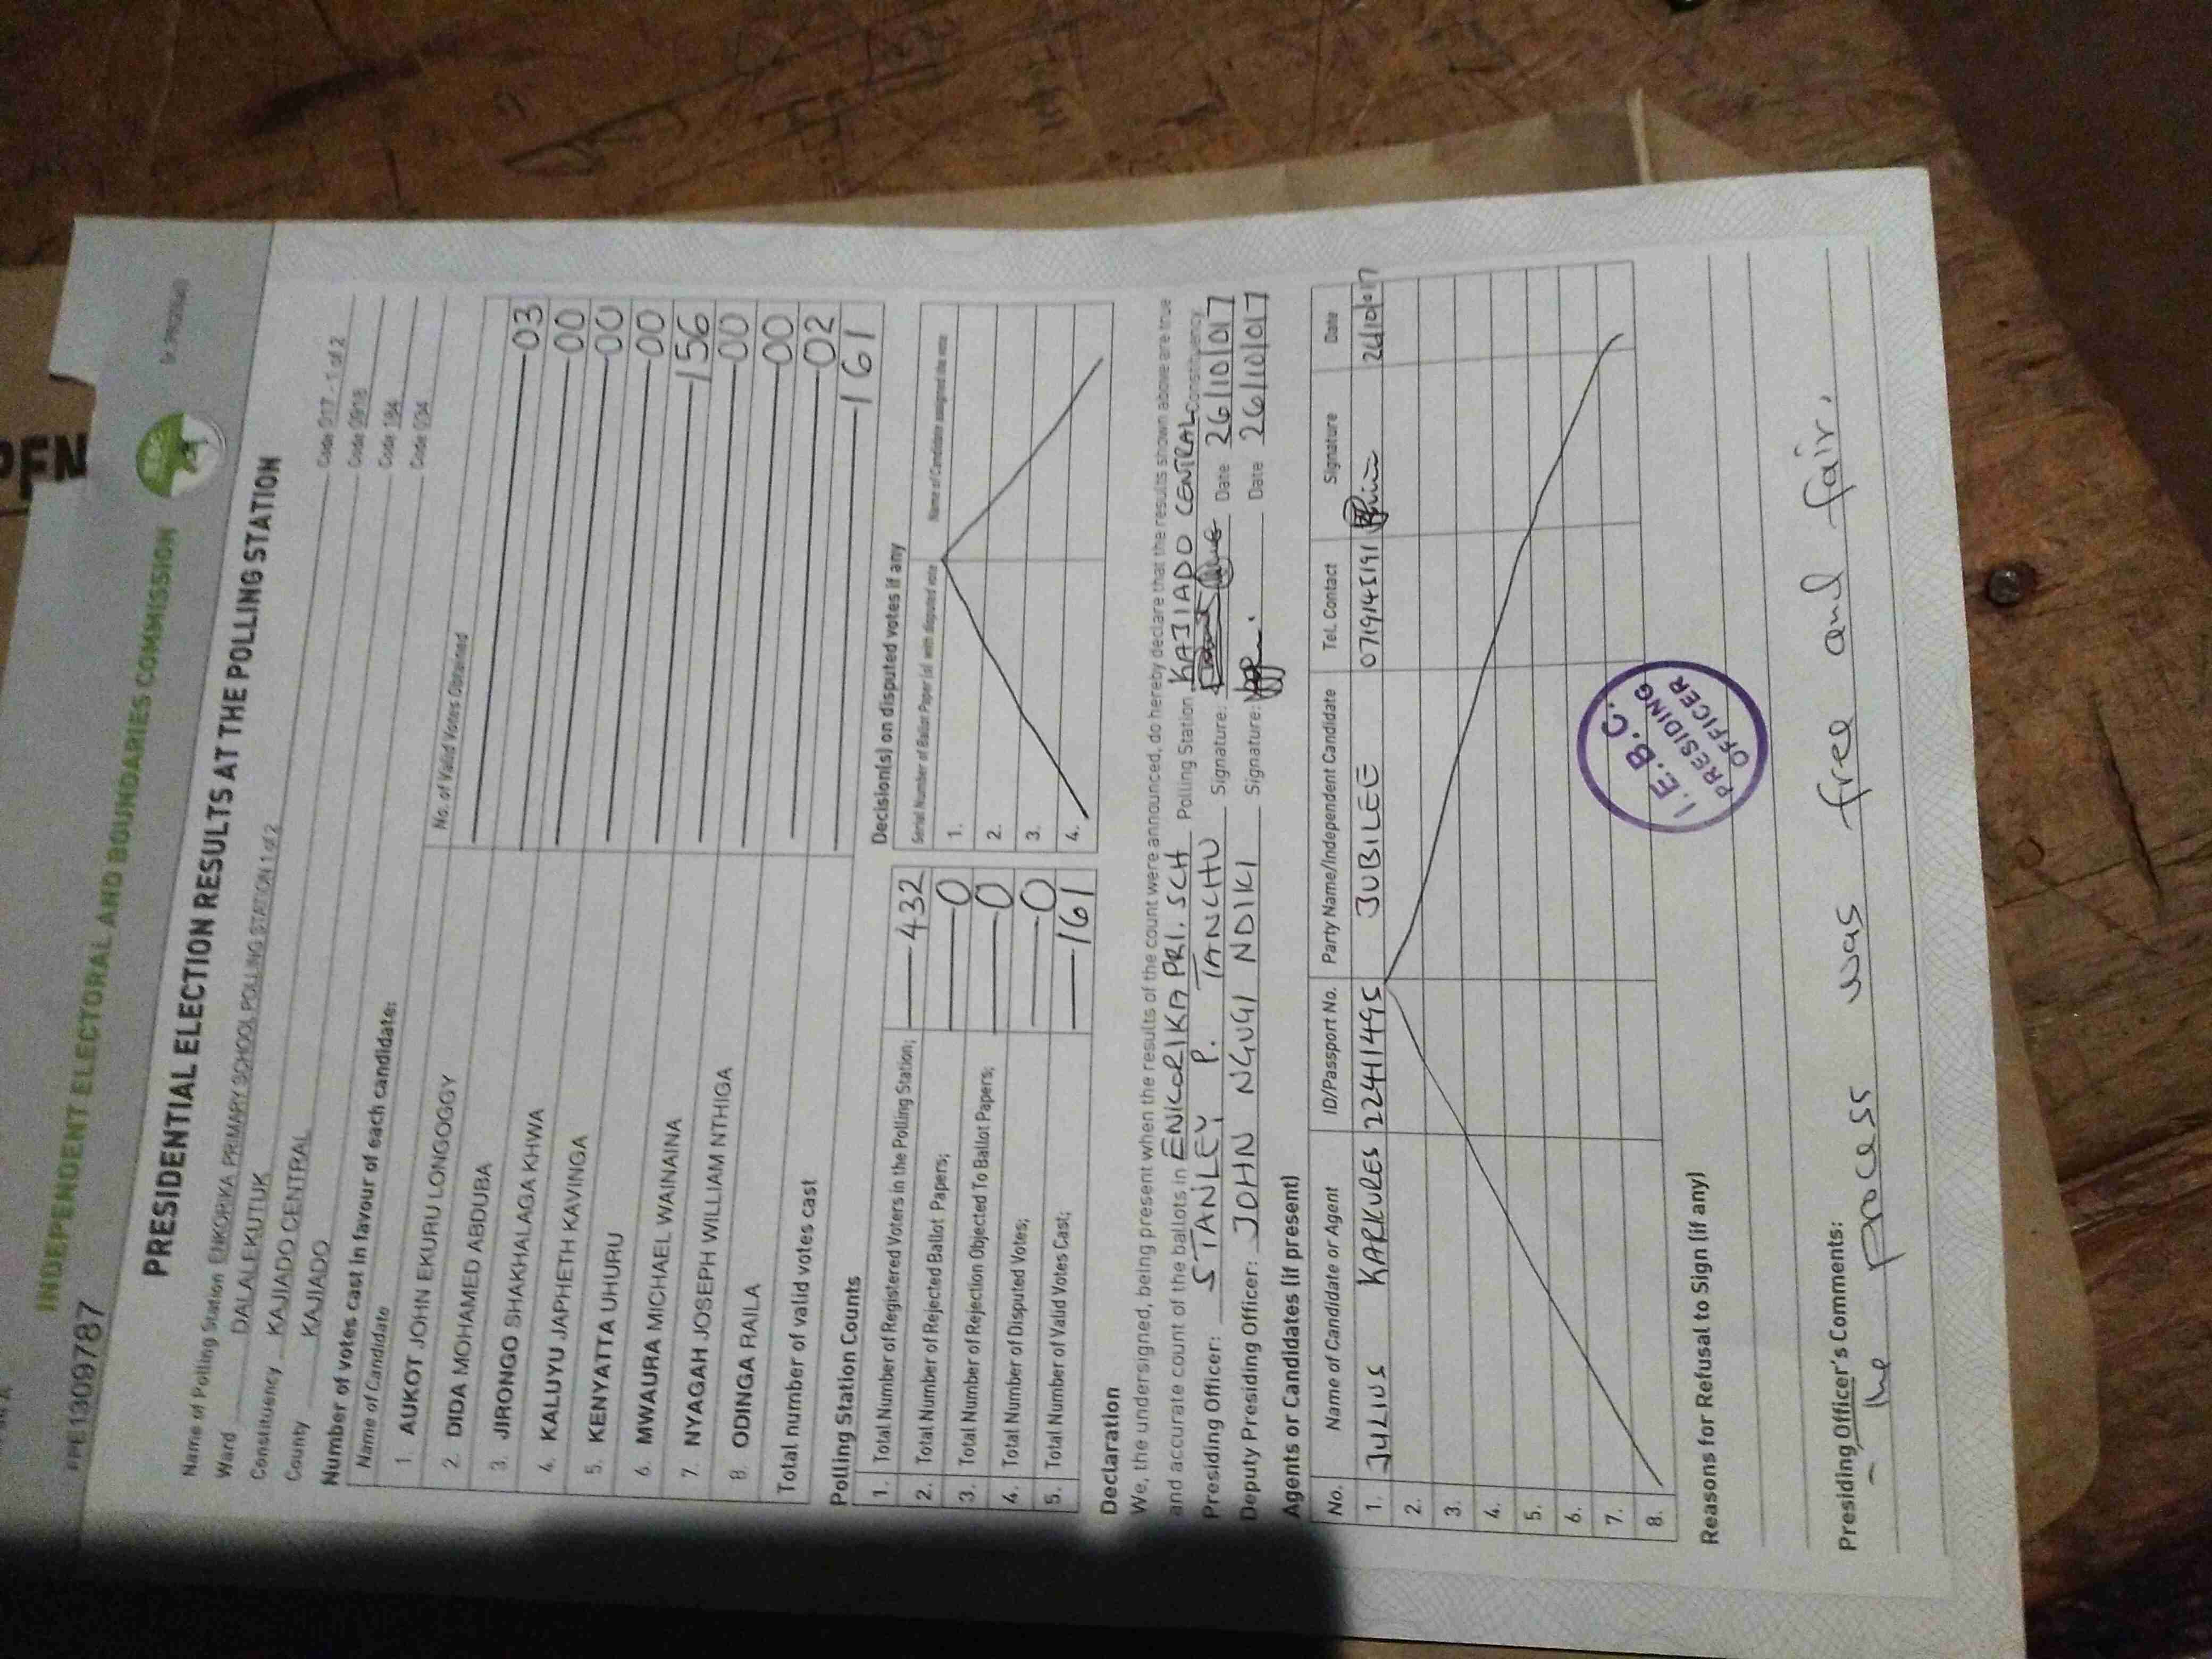 PFN
INDEPENDENT ELECTORAL AND BOUNDARIES COMMISSION
PRESIDENTIAL ELECTION RESULTS AT THE POLLING STATION
Name of Polling Station ENKORIKA PRIMARY SCHOOL POLLING STATION 1 of 2 Code 017 - 1 of 2
Ward DALALEKUTUK Code 0918
Constituency KAJIADO CENTRAL Code 184
County KAJIADO Code 034
Number of votes cast in favour of each candidate:
Name of Candidate No. of Valid Votes Obtained
1. AUKOT JOHN EKURU LONGOGGY 03
2. DIDA MOHAMED ABDUBA 00
3. JIRONGO SHAKHALAGA KHWA 00
4. KALUYU JAPHETH KAVINGA 00
5. KENYATTA UHURU 156
6. MWAURA MICHAEL WAINAINA 00
7. NYAGAH JOSEPH WILLIAM NTHIGA 00
8. ODINGA RAILA 02
Total number of valid votes cast 161
Polling Station Counts
1. Total Number of Registered Voters in the Polling Station; 432
2. Total Number of Rejected Ballot Papers; 0
3. Total Number of Rejection Objected To Ballot Papers; 0
4. Total Number of Disputed Votes; 0
5. Total Number of Valid Votes Cast; 161
Decision(s) on disputed votes if any
Serial Number of Ballot Paper (s) with disputed vote Name of Candidate assigned the vote
1.
2.
3.
4.
Declaration
We, the undersigned, being present when the results of the count were announced, do hereby declare that the results shown above are true
and accurate count of the ballots in ENKORIKA PRI. SCH Polling Station, KAJIADO CENTRAL Constituency.
Presiding Officer: STANLEY P. TANCHU Signature: Date 26/10/017
Deputy Presiding Officer: JOHN NGUGI NDIKI Signature: Date 26/10/017
Agents or Candidates (if present)
No. Name of Candidate or Agent ID/Passport No. Party Name/Independent Candidate Tel. Contact Signature Date
1. JULIUS KARKURES 22414495 JUBILEE 0719145191 26/10/017
2.
3.
4.
5.
6.
7.
8.
I.E.B.C.
PRESIDING
OFFICER
Reasons for Refusal to Sign (if any)
Presiding Officer's Comments:
- The process was free and fair.